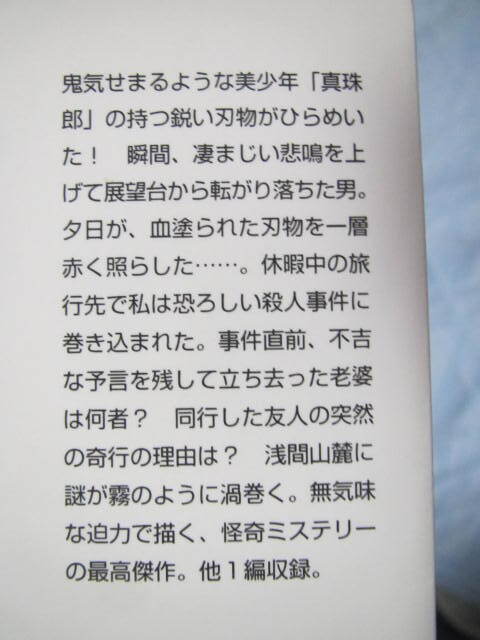 鬼気せまるような美少年「真珠
郎」の持つ鋭い刃物がひらめい
た！　瞬間、凄まじい悲鳴を上
げて展望台から転がり落ちた男。
夕日が、血塗られた刃物を一層
赤く照らした……。休暇中の旅
行先で私は恐ろしい殺人事件に
巻き込まれた。事件直前、不吉
な予言を残して立ち去った老婆
は何者？　同行した友人の突然
の奇行の理由は？　浅間山麓に
謎が霧のように渦巻く。無気味
な迫力で描く、怪奇ミステリー
の最高傑作。他１編収録。